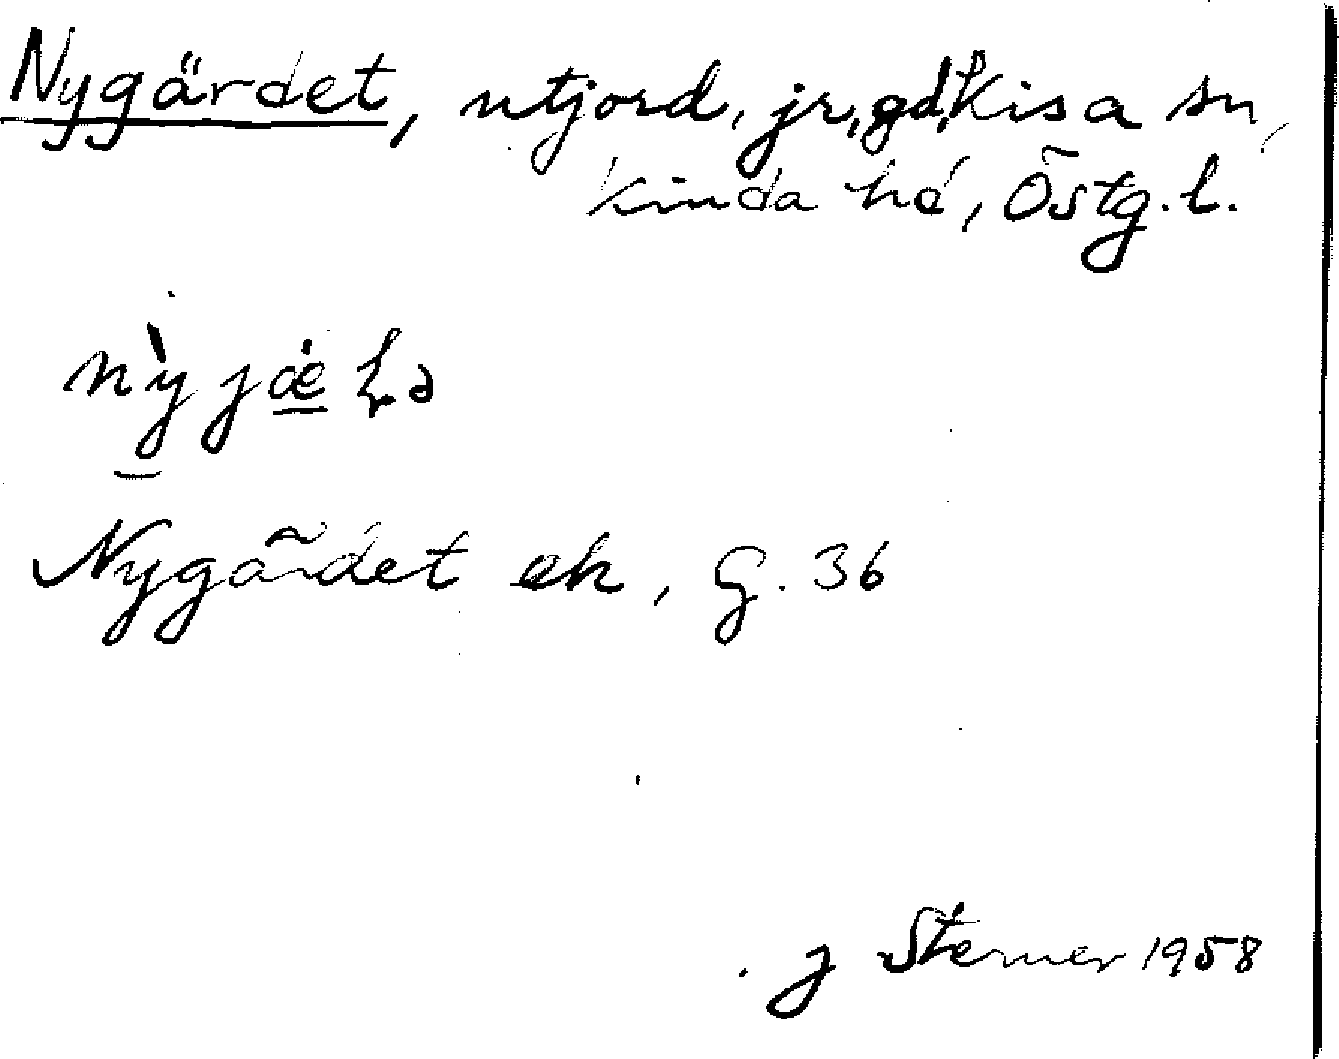 Nygärdet, utjord, jr, gd, Kisa sn,
Kinda hd, Östg. l.
Nygärdet ek, G. 36
J Sterner 1958